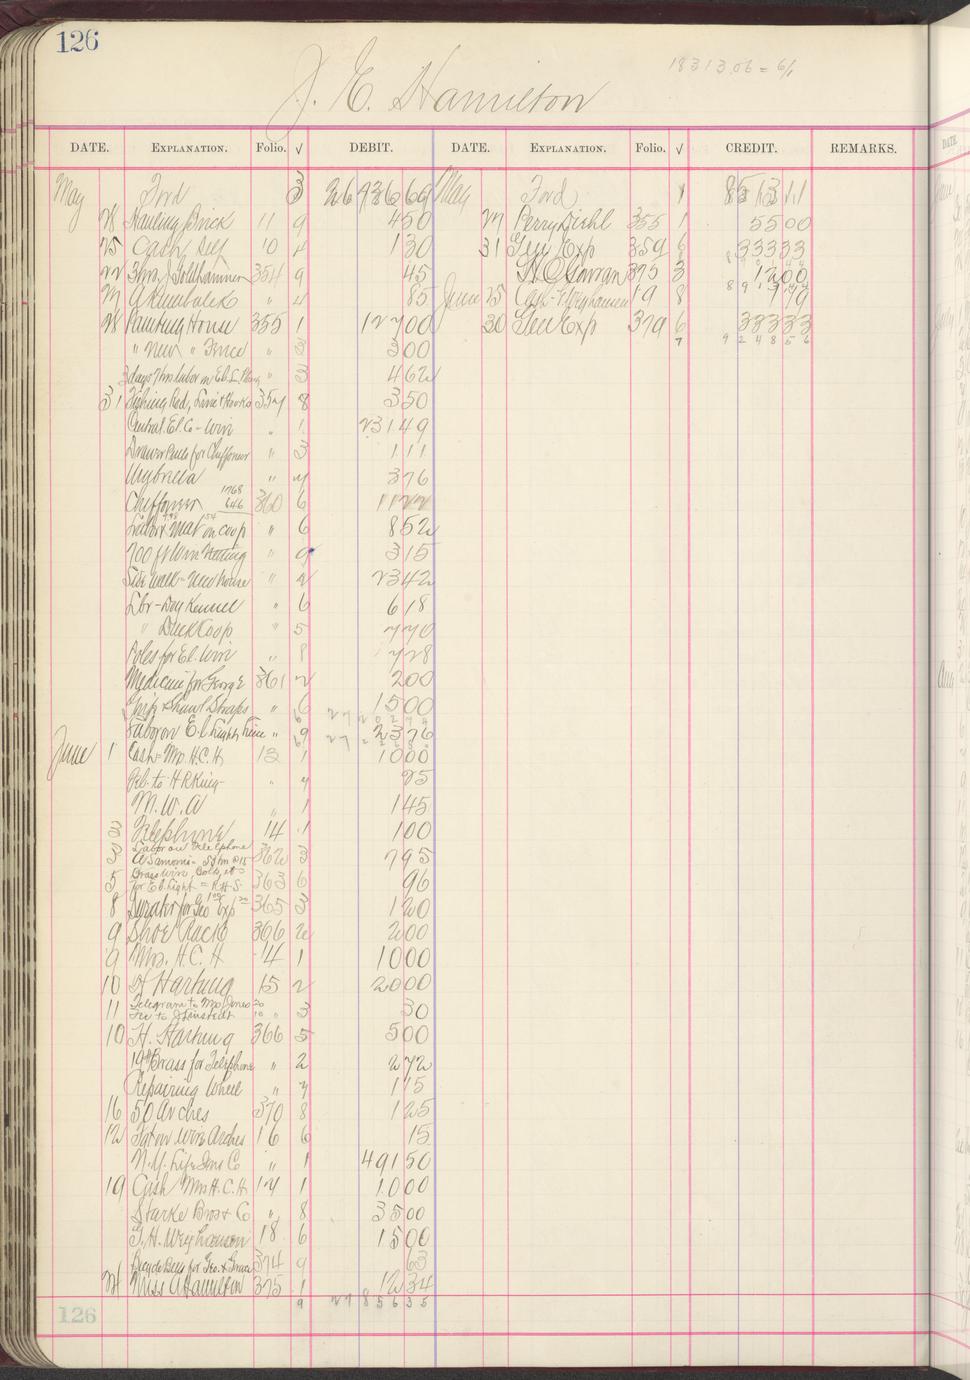 126
18313.06 = 6/1
J. E. Hamilton
DATE. EXPLANATION. Folio. √ DEBIT. DATE. EXPLANATION. Folio. √ CREDIT. REMARKS.
May Ford 3 2643669 May Ford 1 856311
28 Hauling Brick 11 9 450 27 Perry Diehl 355 1 5500
25 Cash Self 10 4 130 31 Gen Exp 359 6 33333
22 354 9 45 375 3 1200
27 " 4 85 June 25 Cash 19 8 779
28 Painting House 355 1 12700 30 Gen Exp 379 6 33333
" New " Fence " 3 300 7 9 2 4 8 5 6
3 days 7 hrs labor on El. L. " 3 462
31 Fishing Rod, Line & Hooks 357 8 350
Central El. Co - Wire " 1 23149
Drawer Pulls for Cheffonier " 3 111
Umbrella " 7 376
Cheffonier 1768 646 360 6 1122
Labor & Mat on coop " 6 852
700 ft Wire Netting " 9 315
Side Walk - New house " 2 2342
Lbr - Dog Kennel " 6 618
" Duck Coop " 5 770
Poles for El. Wire " 8 728
Medicine for George 361 2 200
& Shawl Straps " 6 1500
Labor on El. Lights Line " 9 2376
June 1 Cash Mrs. H.C.H. 13 1 1000
to H R King " 7 25
M. W. A " 1 145
3 Telephone 14 1 100
3 Labor on Telephone 362 3 795
5 Brass Wire, Bolts, etc for El. Light = R.H.S. 363 6 96
8 for Geo Exp 365 3 120
9 Shoe Rack 366 2 200
9 Mrs. H.C.H 14 1 1000
10 H Hartung 15 2 2000
11 Telegram to Mrs Jones 20
Fee to 10 " 3 30
10 H. Hartung 366 5 500
19# Brass for Telephone " 2 272
Repairing Wheel " 7 115
16 50 Arches 370 8 125
12 on Wire Arches 16 6 15
N.Y. Life Ins Co " 1 49150
19 Cash Mrs H.C.H. 17 1 1000
Starke Bros & Co " 8 3500
18 6 1500
Bicycle Bells for Geo. & Grace 374 9 63
24 Miss A Hamilton 375 1 1234
9 2 7 8 5 6 3 5
126